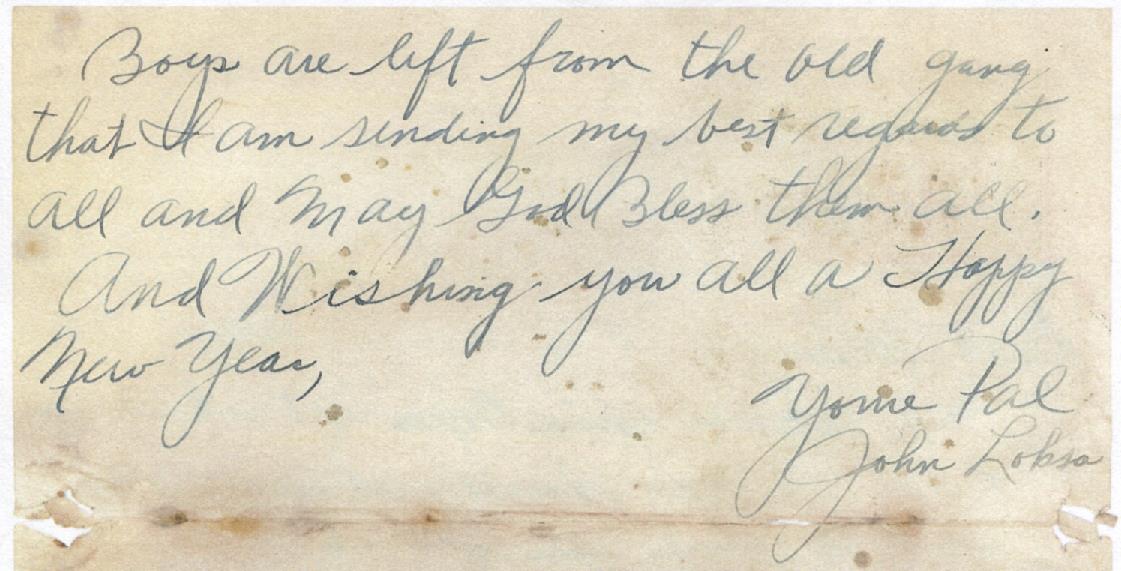 Boys are left from the old gang
that I am sending my best regards to
all and May God Bless them all.
And Wishing you all a Happy
New Year,
Your Pal
John